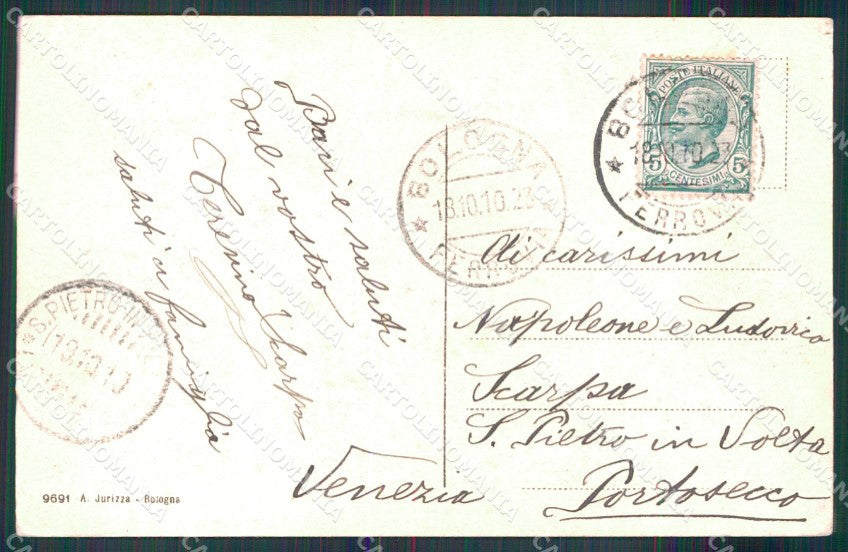 Baci e saluti
dal vostro
Teresino Scarpa
saluti a famiglia
BOLOGNA
18.10.10.23
FERROVIA
POSTE ITALIANE
5 CENTESIMI 5
18.10.10 23
FERROVIA
Ai carissimi
Napoleone e Ludovico
Scarpa
S. Pietro in Volta
Venezia Portosecco
S. PIETRO IN
19.10.10
9691 A. Jurizza - Bologna
CARTOLINOMANIA